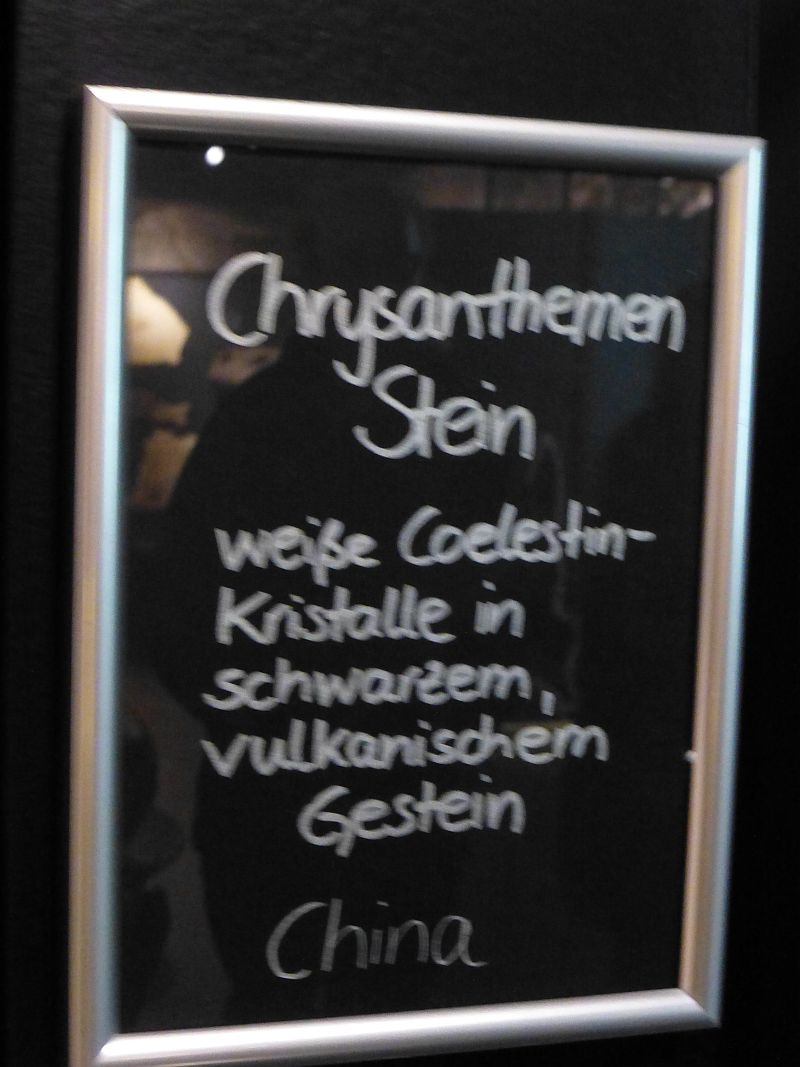 Chrysanthemen
Stein
weiße Coelestin-
Kristalle in
schwarzem,
vulkanischem
Gestein
China